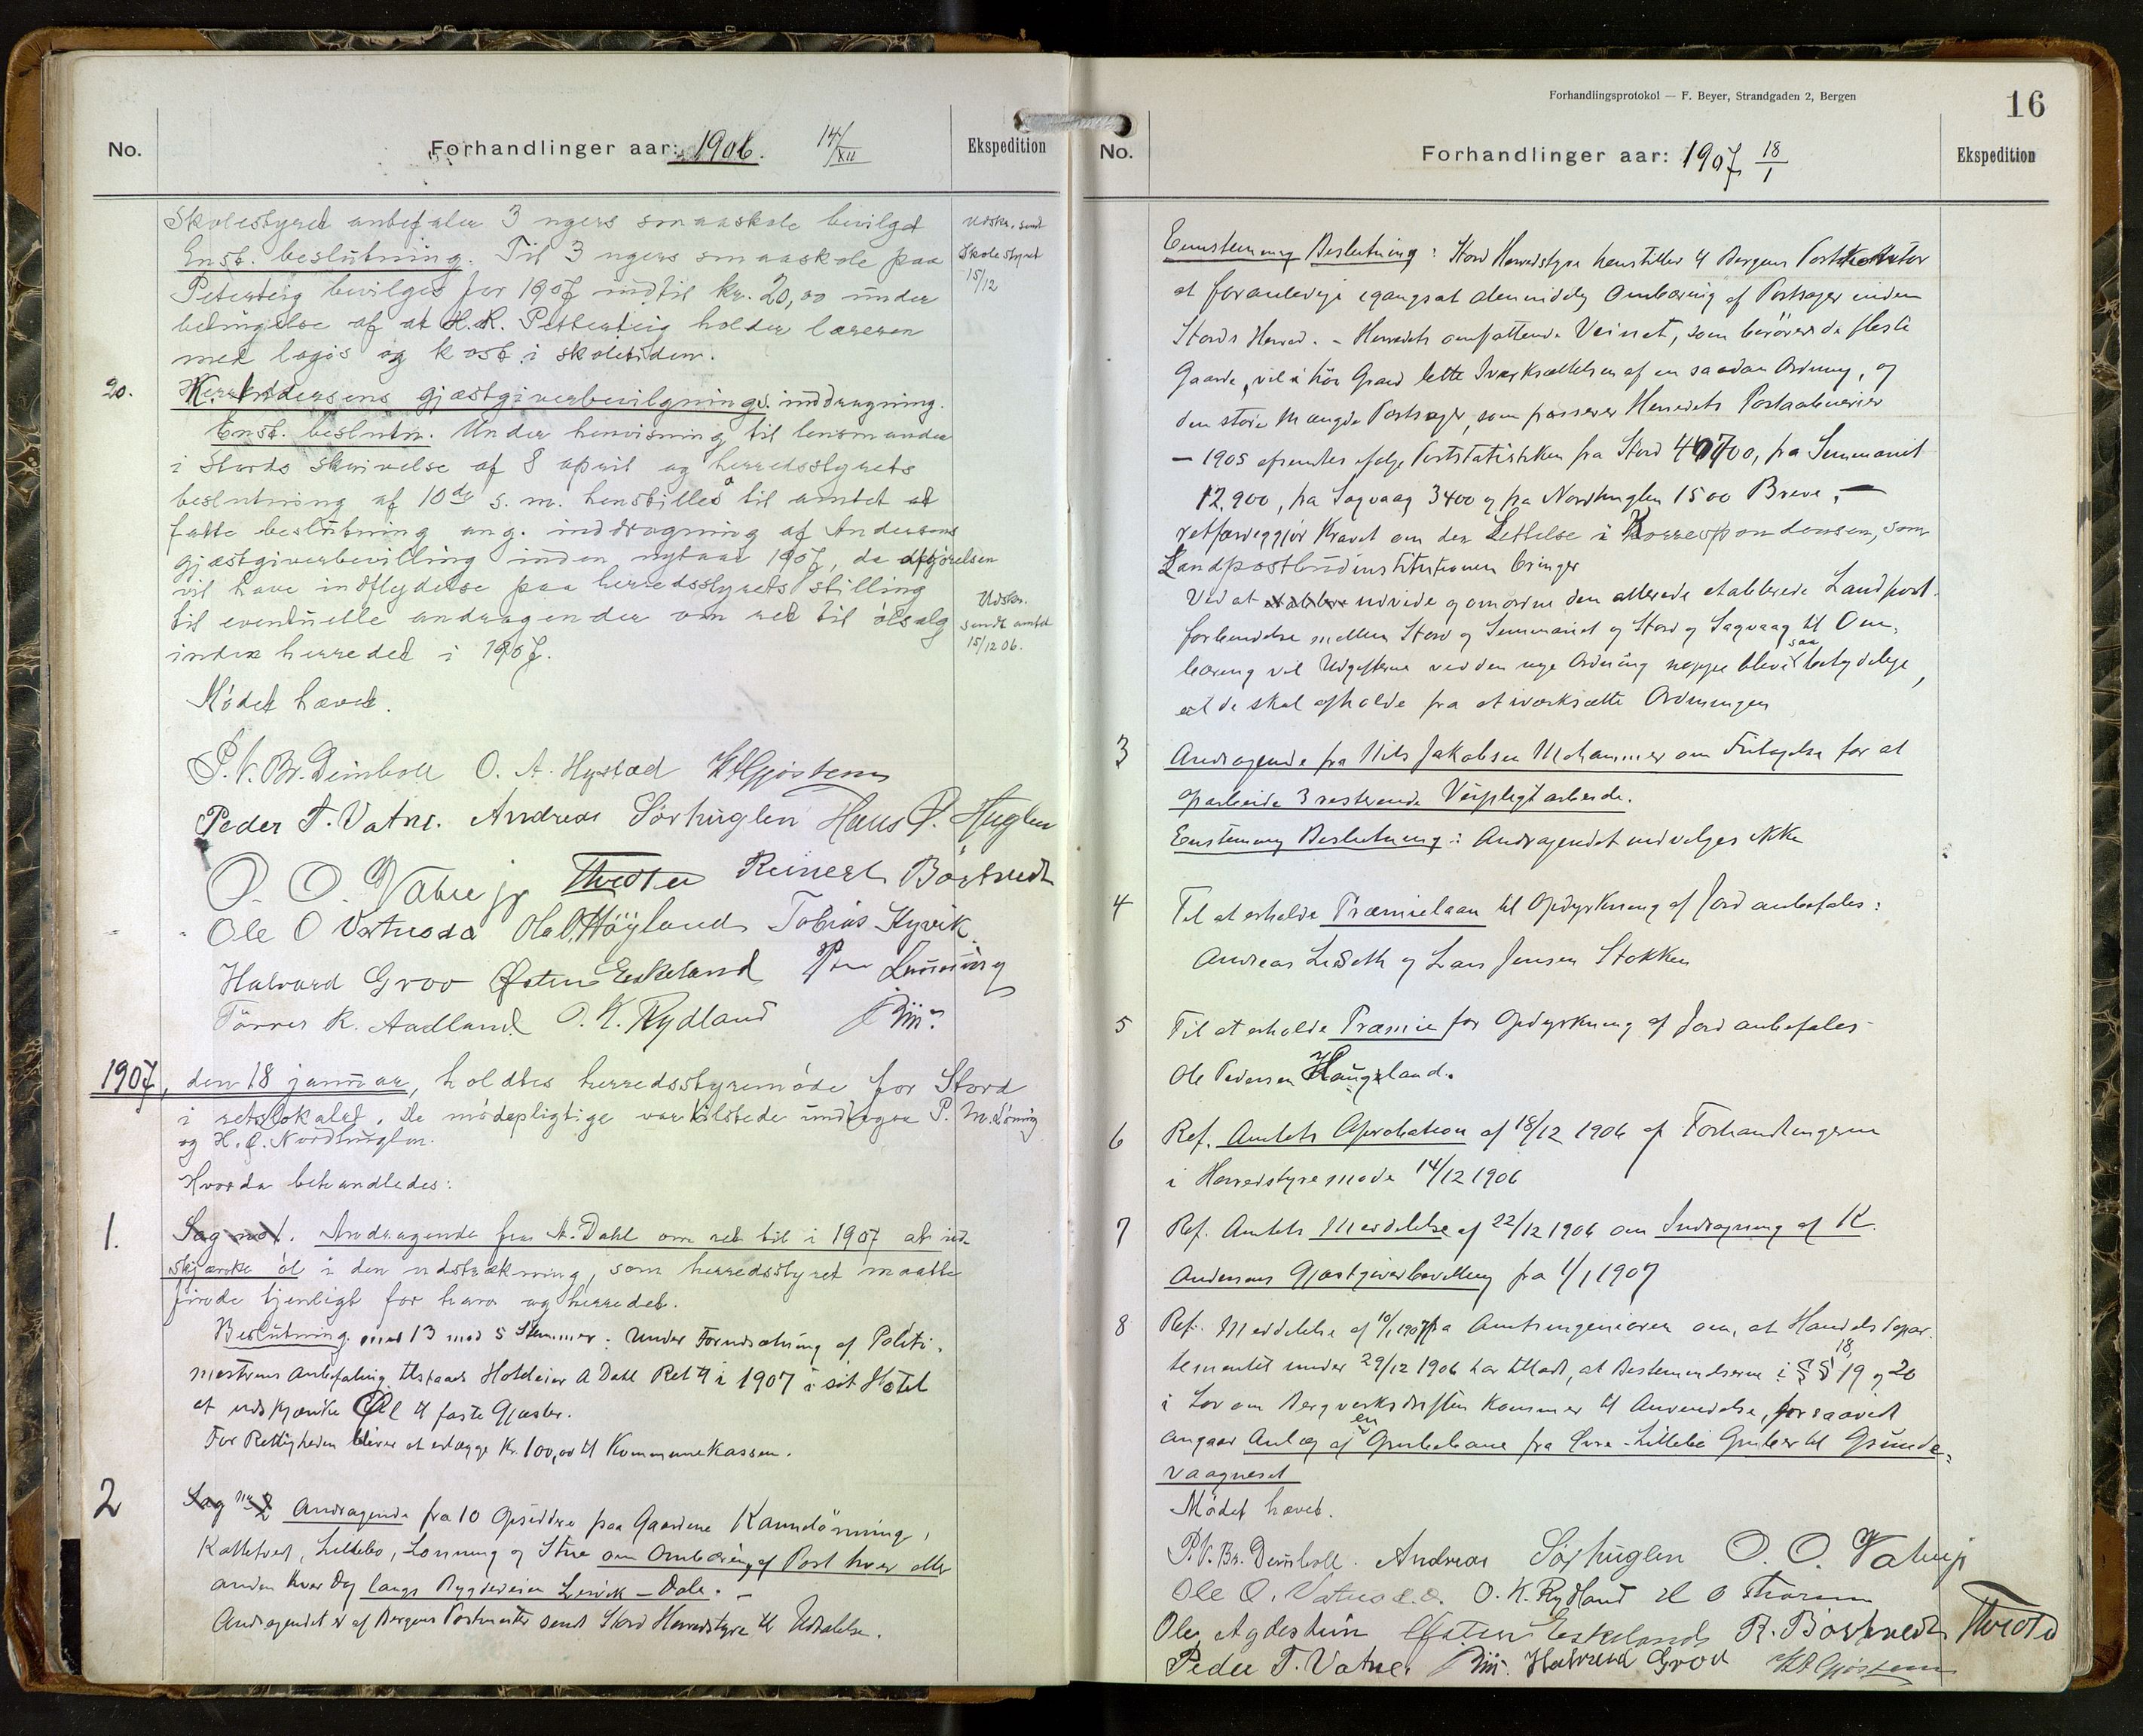 No.
Forhandlinger aar: 1906. 14/XII
Ekspedition
Skolestyret anbefaler 3 ugers smaaskole bevilget
Enst. beslutning. Til 3 ugers smaaskole paa
Petersteig bevilges for 1907 indtil kr. 20,00 under
betingelse af at H. K. Petterteig holder læreren
med logis og kost i skoletiden.
Udskr. sendt
Skolestyret
15/12
20. Herr Andersens gjæstgiverbevilgnings inddragning.
Enst. beslutn. Under henvisning til lensmanden
i Stords skrivelse af 8 april og herredsstyrets
beslutning af 10de s. m. henstilles til amtet at
fatte beslutning ang. inddragning af Andersens
gjæstgiverbevilling inden nytaar 1907, da afgjørelsen
vil have indflydelse paa herredsstyrets stilling
til eventuelle andragender om ret til ølsalg
inden herredet i 1907.
Udskr.
sendt amtet
15/12 06.
Mødet hævet.
P. V. Br. Deinboll O. A. Hystad
Peder T. Vatne. Andreas Sørhuglen Hans Ø. Huglen
O. O. Vatne jr Reinert Børtveit
Ole O Vatnødø Ole O. Høyland Tobias Kyvik
Halvard Groo Østen Eskeland
Tørres R. Aadland O. K. Rydland
1907, den 18 januar, holdtes herredsstyremøde for Stord
i retslokalet. De mødepligtige var tilstede undtagen P. M. Lønning
og H. Ø. Nordhuglen.
Hvorda behandledes:
1. Sag no 1. Andragende fra A. Dahl om ret til i 1907 at ud
skjænke øl i den udstrækning, som herredsstyret maatte
finde tjenligt for ham og herredet.
Beslutning med 13 mod 5 Stemmer: Under Forudsætning af Politi-
mesterens Anbefaling tilstaaes Hoteleier A Dahl Ret til i 1907 i sit Hotel
at udskjænke Øl til faste Gjæster.
For Rettigheden bliver at erlægge Kr. 100,00 til Kommunekassen.
2 Sag no 2 Andragende fra 10 Opsiddere paa Gaardene Landønning,
Kattetveit, Lillebo, Lonning og Stue om Ombæring af Post hver eller
anden hver Dag langs Bygdeveien Lervik – Dale. –
Andragendet er af Bergens Postmester sendt Stord Herredstyre til Udtalelse.
Forhandlingsprotokol — F. Beyer, Strandgaden 2, Bergen
16
No.
Forhandlinger aar: 1907 18/1
Ekspedition
Eenstemmig Beslutning: Stord Herredstyre henstiller til Bergens Postkontor
at foranledige igangsat almindelig Ombæring af Postsager inden
Stords Herred. – Herredets omfattende Veinet, som berører de fleste
Gaarde, vil i høi Grad lette Iværksættelsen af en saadan Ordning, og
den store Mængde Postsager, som passerer Herredets Postaabnerier
– 1905 afsendtes ifølge Poststatistiken fra Stord 40700, fra
12,900, fra Sagvaag 3400 og fra Nordhuglen 1500 Breve, –
retfærdiggjør Kravet om den Lettelse i Korrespondensen, som
Landpostbudinstitutionen bringer
Ved at udvide og omordne den allerede etablerede Landpost-
forbindelse mellem Stord og og Stord og Sagvaag til Om-
bæring vil Udgifterne ved den nye Ordning neppe blive saa betydelige,
at de skal afholde fra at iværksætte Ordningen
3 Andragende fra Nils Jakobsen Mehammer om Fritagelse for at
oparbeide 3 resterende Veipligtarbeide.
Eenstemmig Beslutning: Andragendet indvilges ikke
4 Til at erholde Præmielaan til Opdyrkning af Jord anbefales:
Andreas og Lars Jensen Stokken
5 Til at erholde Præmie for Opdyrkning af Jord anbefales
Ole Pedersen Haugland.
6 Ref. Amtets Aprobation af 18/12 1906 af Forhandlingerne
i Herredstyremøde 14/12 1906
7 Ref. Amtets Meddelelse af 22/12 1906 om Inddragning af K.
Andersens Gjæstgiverbevilling fra 1/1 1907
8 Ref. Meddelelse af 10/1 1907 fra Amtsingeniøren om, at Handelsdepar-
tementet under 29/12 1906 har tilladt, at Bestemmelserne i §§ 18, 19 og 20
i Lov om Bergværksdriften kommer til Anvendelse, forsaavidt
angaar Anlæg af en Grubebane fra Øvre-Lillebø Gruber til Grunde-
vaagneset
Mødet hævet.
P. V. Br. Deinboll. Andreas Sørhuglen O. O. Vatne jr
Ole O. Vatnødø. O. K. Rydland
Ole Agdestein Østen Eskeland R. Børtveit
Peder T. Vatne. Halvard Groo